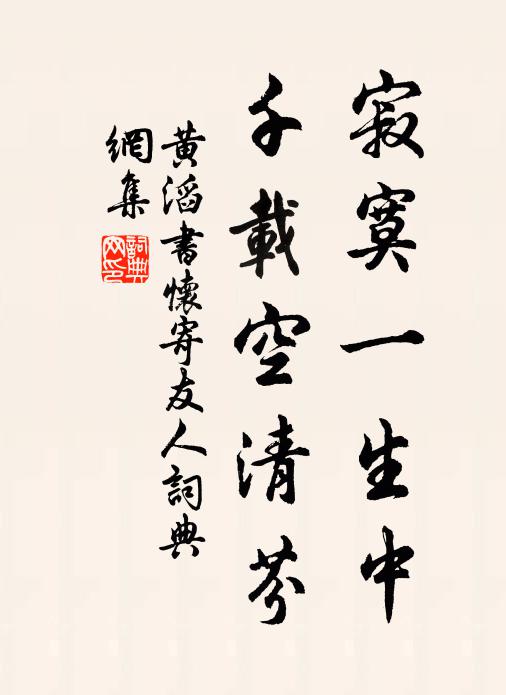 寂寞一生中
千載空清芬
黄滔書懷寄友人詞典
網集
詞典網印